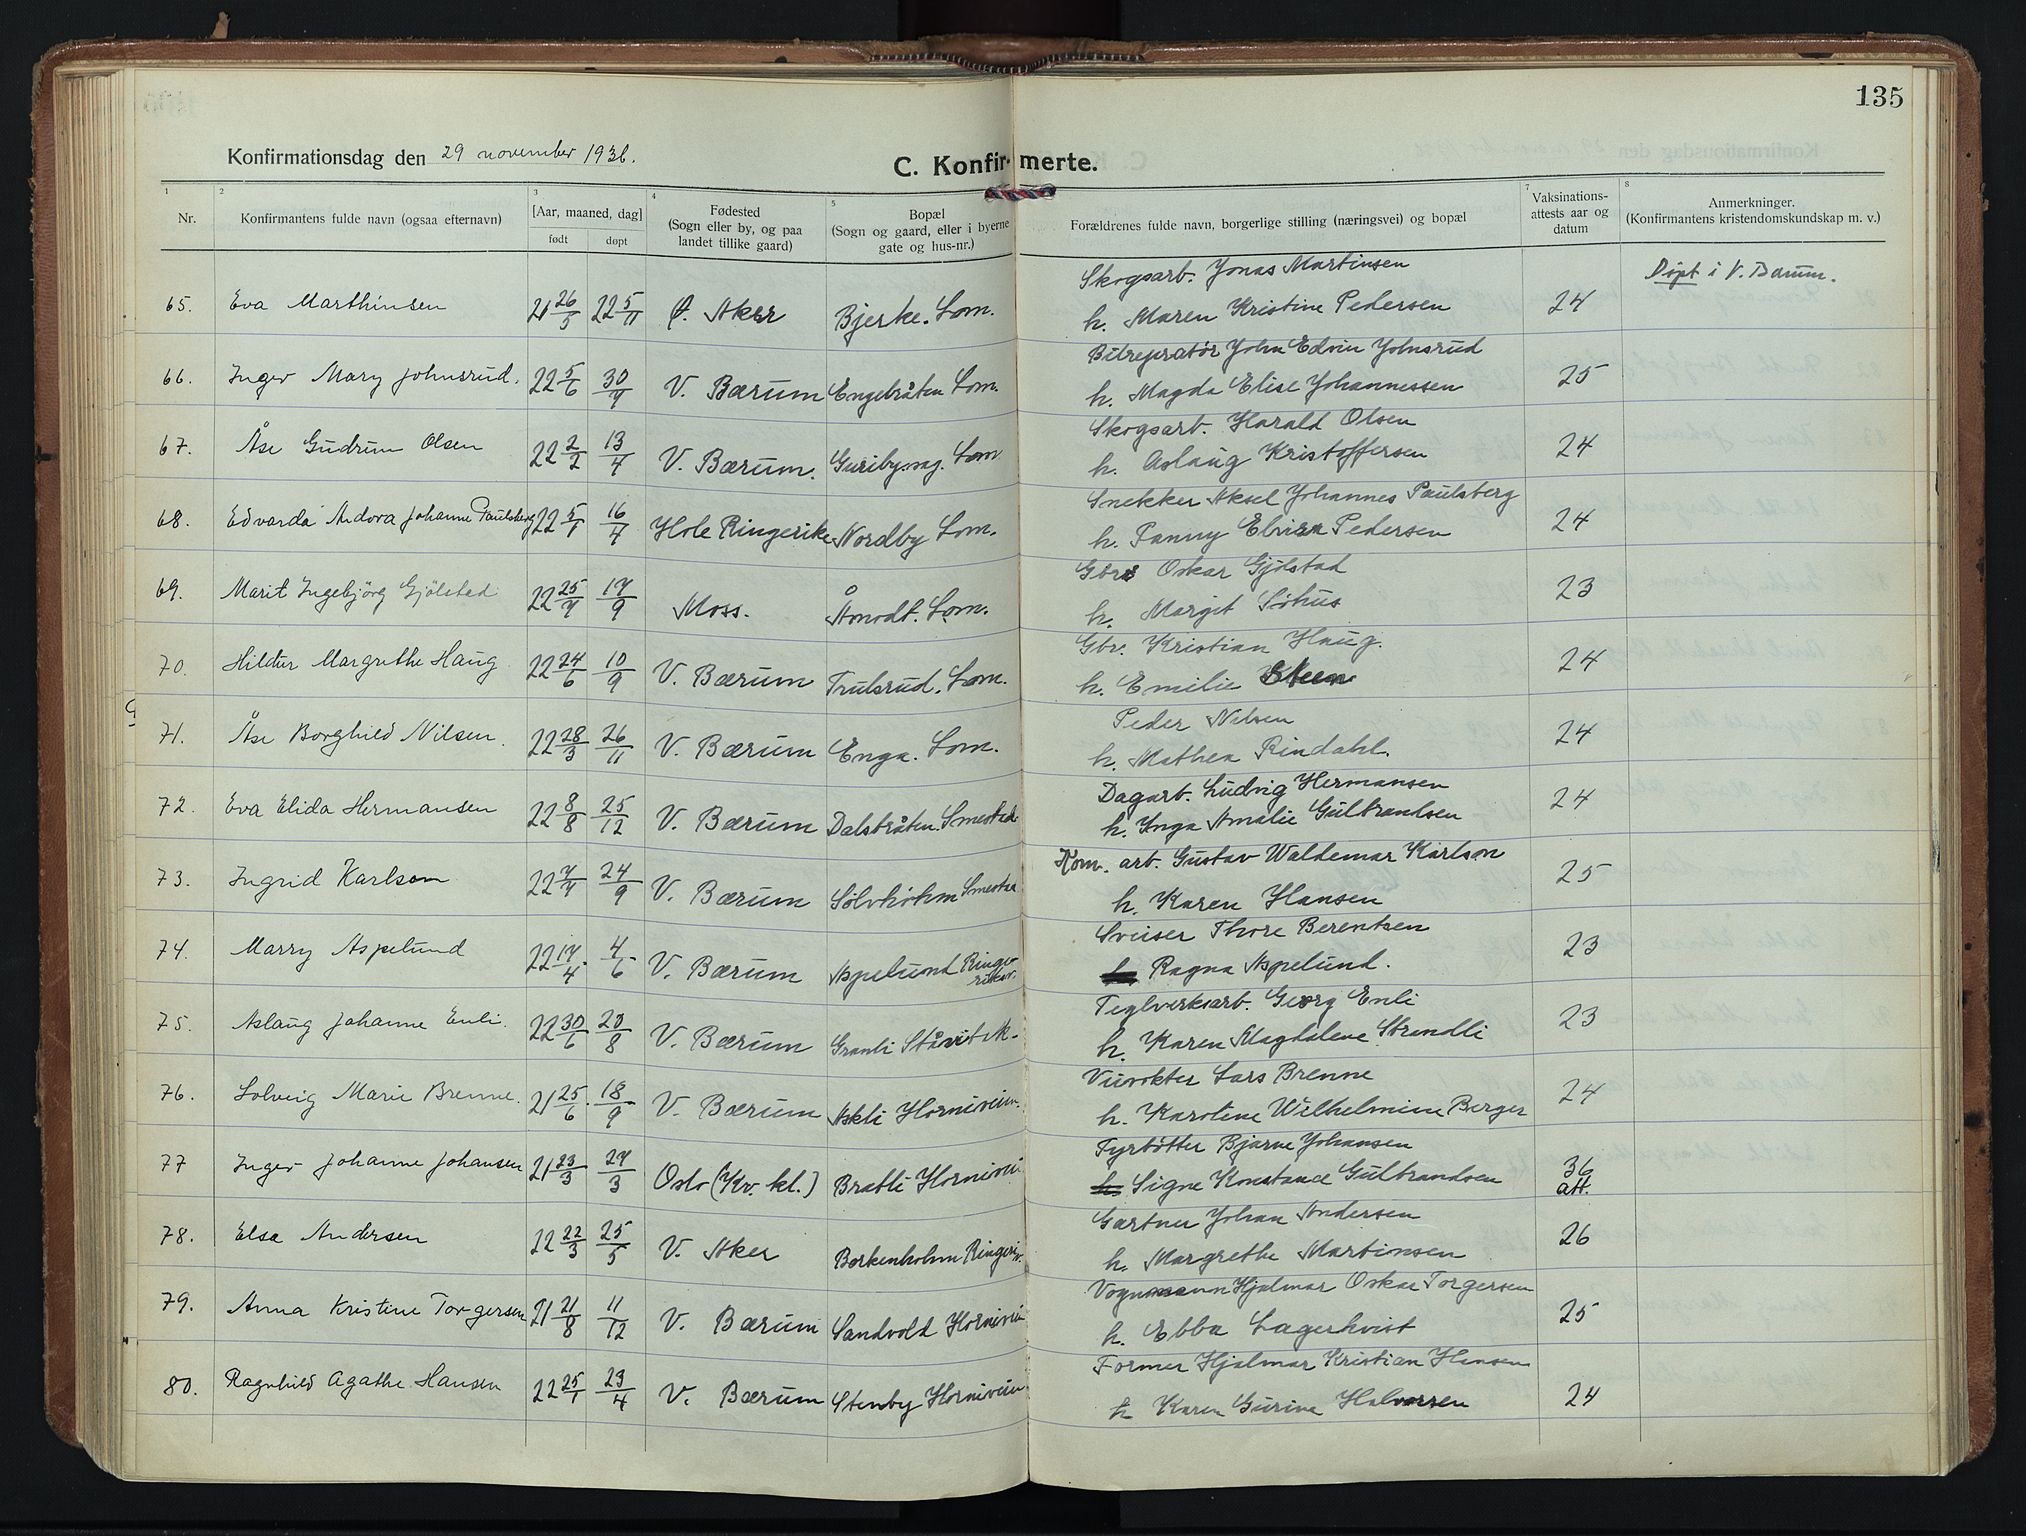 135
Konfirmationsdag den 29 november 1936.
C. Konfirmerte.
1 2 3 4 5 7 8
Nr. Konfirmantens fulde navn (ogsaa efternavn) [Aar, maaned, dag] født døpt Fødested (Sogn eller by, og paa landet tillike gaard) Bopæl (Sogn og gaard, eller i byerne gate og hus-nr.) Forældrenes fulde navn, borgerlige stilling (næringsvei) og bopæl Vaksinations-attests aar og datum Anmerkninger. (Konfirmantens kristendomskundskap m. v.)
65. Eva Marthinsen 21 26/5 22 5/11 Ø. Aker Bjerke. Lom. Skogsarb. Jonas Martinsen 24 Døpt i V. Bærum.
h. Maren Kristine Pedersen
66. Inger Mary Johnsrud. 22 5/6 30/7 V. Bærum Engebråten Lom. Bilrepratør John Edvin Johnsrud 25
h. Magda Elise Johannessen
67. Åse Gudrun Olsen 22 2/2 13/4 V. Bærum. Guribymag. Lom Skogsarb. Harald Olsen 24
h. Aslaug Kristoffersen
68. Edvarda Andora Johanne Paulsberg 22 5/1 16/4 Hole Ringerike Nordby Lom. Snekker Aksel Johannes Paulsberg 24
h. Fanny Elvira Pedersen
69. Marit Ingebjörg Gjölstad 22 25/7 17/9 Moss. Åmodt. Lom. Gbr. Oskar Gjølstad 23
h. Margit Söhus
70. Hildur Margrethe Haug 22 24/6 10/9 V. Bærum Trulsrud. Lom. Gbr. Kristian Haug. 24
h. Emilie Steen
71. Åse Borghild Nilsen. 22 28/3 26/11 V. Bærum Enga. Lom. Peder Nilsen 24
h. Mathea Rindahl.
72. Eva Elida Hermansen 22 8/8 25/12 V. Bærum Dalsbråten. Smestad Dagarb. Ludvig Hermansen 24
h. Inga Amalie Gulbrandsen
73. Ingrid Karlson 22 7/7 24/9 V. Bærum Sølvholm Smestad Kom. arb. Gustav Waldemar Karlson 25
h. Karen Hansen
74. Marry Aspelund 22 17/4. 4/6 V. Bærum Aspelund Ringeriksv. Sveiser Thore Berentsen 23
Ragna Aspelund.
75. Aslaug Johanne Enli. 22 30/6 20/8 V. Bærum Granli Ståvivk. Teglverksarb. Georg Enli 23
h. Karen Magdalene Strandli
76. Solveig Marie Brenne. 21 25/6. 18/9 V. Bærum Askli Horniveien. Viivokter Lars Brenne 24
h. Karoline Wilhelmine Berger
77 Inger Johanne Johansen 21 23/3 27/3 Oslo (Kv. kl.) Bratli Hornivei Fyrbøtter Bjarne Johansen 36 att.
h. Signe Konstance Gulbrandsen
78. Elsa Andersen 22 22/3 25/5 V. Aker Borkenholm Ringeriv. Gartner Johan Andersen 26
h. Margrethe Martinsen
79. Anna Kristine Torgersen 21 21/8 11/12 V. Bærum Sandvold Horniveien Vognmann Hjalmar Oskar Torgersen 25
h. Ebba Lagerkvist
80. Ragnhild Agathe Hansen 22 25/1 23/4 V. Bærum Stenby Horniveien Former Hjalmar Kristian Hansen 24
h Karen Gurine Halvorsen